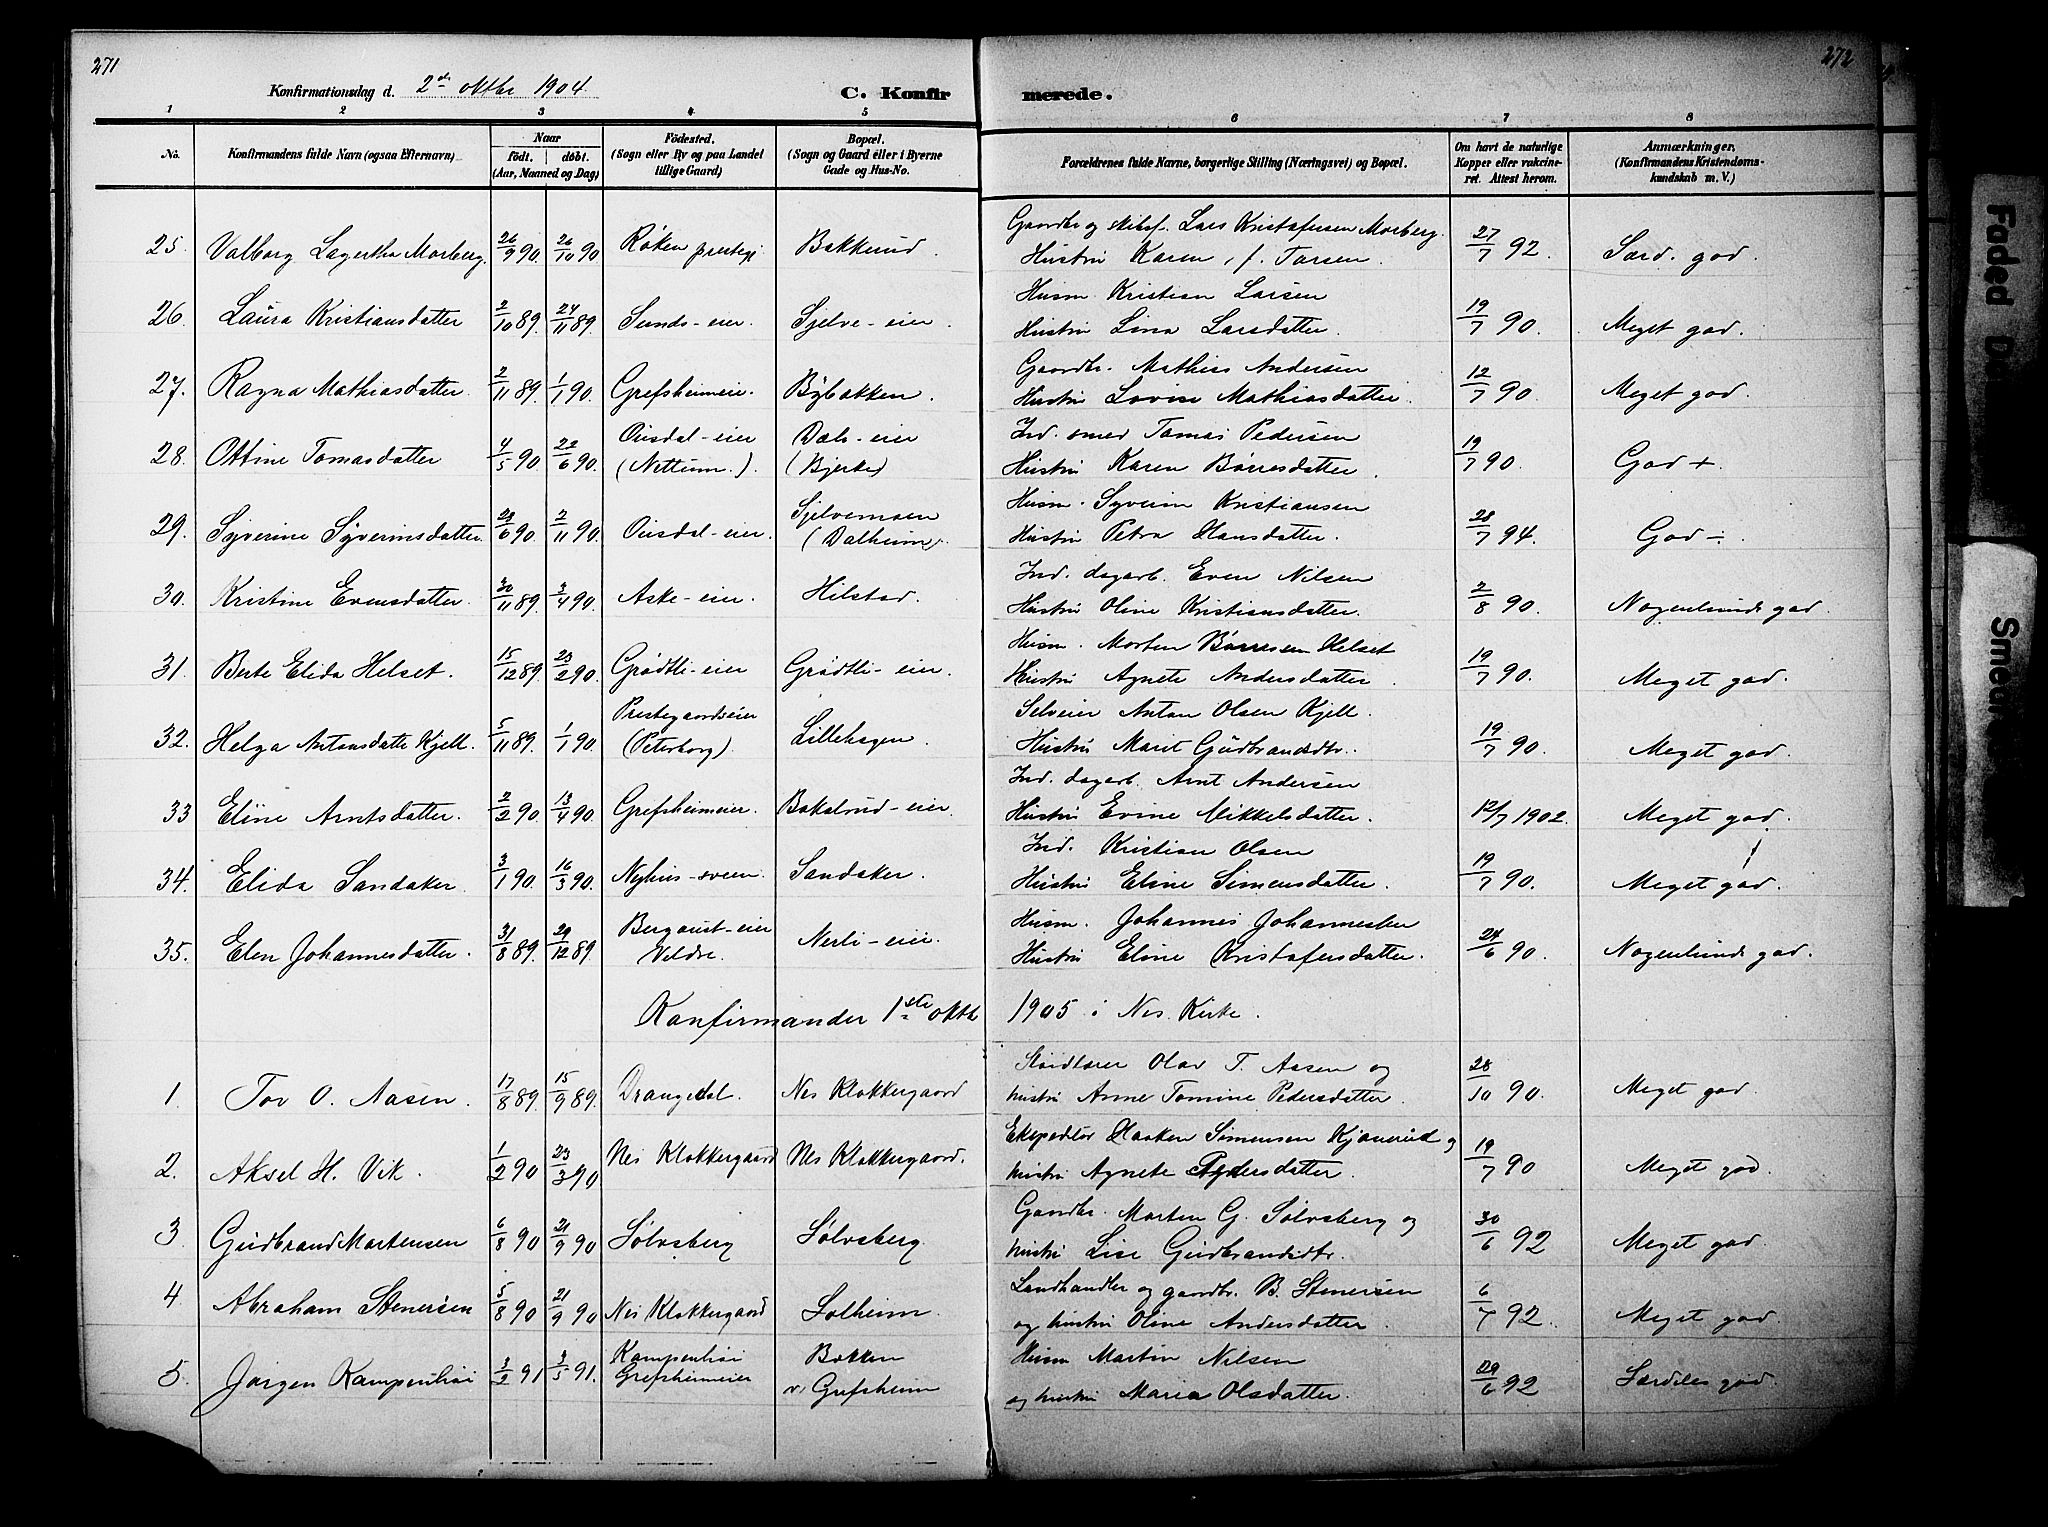 271
272
Konfirmationsdag d. 2den oktbr 1904
C. Konfirmerede.
1 2 3 4 5 6 7 8
No. Konfirmandens fulde Navn (ogsaa Efternavn). Naar født. døbt. (Aar, Maaned og Dag) Fødested. (Sogn eller By og paa Landet tillige Gaard) Bopæl. (Sogn og Gaard eller i Byerne Gade og Hus-No. Forældrenes fulde Navne, borgerlige Stilling (Næringsvei) og Bopæl. Om havt de naturlige Kopper eller vaccineret. Attest herom. Anmærkninger. (Konfirmandens Kristendomskundskab m. V.)
25. Valborg Lagertha Morberg. 26/9 90. 26/10 90 Røken prestegj. Bakkerud. Gaardbr og Lars Kristofersen Morberg. Hustru Karen, f. Tarsen. 27/7 92. Særd. god.
26. Laura Kristiansdatter 2/10 89. 24/11 89. Sunds-eier. Sjelve-eier. Husm. Kristian Larsen Hustru Lina Larsdatter. 19/7 90. Meget god.
27. Ragna Mathiasdatter 2/11 89. 1/1 90. Grefsheimeie. Bybakken. Gaardbr. Mathias Andersen Hustru Lovise Mathiasdatter. 12/7 90. Meget god.
28. Ottine Tomasdatter 4/5 90. 22/6 90. Ousdal-eier (Nettum.). Dæls-eier (Bjerke) Ind. smed Tomas Pedersen Hustru Karen Børresdatter. 19/7 90. God +.
29. Syverine Syverinsdatter. 29/6 90. 2/11 90. Ousdal-eier. Sjelvemoen (Dælheim). Husm. Syverin Kristiansen Hustru Petra Hansdatter. 28/7 94. God ÷.
30. Kristine Evensdatter. 30/11 89. 3/4 90. Aske-eier. Hilstad. Ind. dagarb. Even Nilsen Hustru Oline Kristiansdatter. 2/8 90. Nogenlunde god.
31. Berte Elida Helset. 15/12 89. 23/2 90. Grødtli-eier Grødtli-eier. Husm. Morten Børresen Helset Hustru Agnete Andersdatter. 19/7 90. Meget god.
32. Helga Antonsdatter Kjell. 5/11 89. 1/1 90. Prestegaardseier (Peterborg). Lillehagen. Selveier Anton Olsen Kjell. Hustru Marit Gudbrandsdtr. 19/7 90. Meget god.
33 Eline Arntsdatter. 2/2 90. 13/4 90. Grefsheimeier. Bakalrud-eier. Ind. dagarb. Arnt Andersen Hustru Evine Mikkelsdatter. 12/7 1902. Meget god.
34. Elida Sandaker 3/1 90. 16/3 90. Nyhus-sveen. Sandaker. Ind. Kristian Olsen Hustru Eline Simensdatter. 19/7 90. Meget god.
35. Elen Johannesdatter. 31/8 89. 29/12 89. Bergaust-eier Veldre. Nerli-eier. Husm. Johannes Johannessen Hustru Eline Kristofersdatter. 24/6 90. Nogenlunde god.
Konfirmander 1ste oktbr 1905 i Nes Kirke.
1. Tov O. Aasen. 17/8 89. 15/9 89. Drangedal. Nes Klokkergaard Olav T. Aasen og hustru Anne Tomine Pedersdatter. 28/10 90. Meget god.
2. Aksel H. Vik. 1/2 90 23/3 90 Nes Klokkergaard Nes Klokkergaard. Ekspeditør Haaken Simensen Kjønerud og hustru Agnete Pedersdatter. 19/7 90 Meget god.
3. Gudbrand Mortensen 6/8 90 21/9 90 Sølvsberg Sølvsberg. Gaardbr. Morten G. Sølvsberg og hustru Lise Gudbrandsdtr. 30/6 92 Meget god.
4. Abraham Stenersen 5/8 90 21/9 90 Nes Klokkergaard Solheim. Landhandler og gaardbr. B. Stenersen og hustru Oline Andersdatter. 6/7 92. Meget god
5. Jørgen Kampenhøi 3/2 91 3/5 91. Kampenhøi Grefsheimeier Bakken v. Grefsheim Husm Martin Nilsen og hustru Maria Olsdatter. 29/6 92 Særdeles god